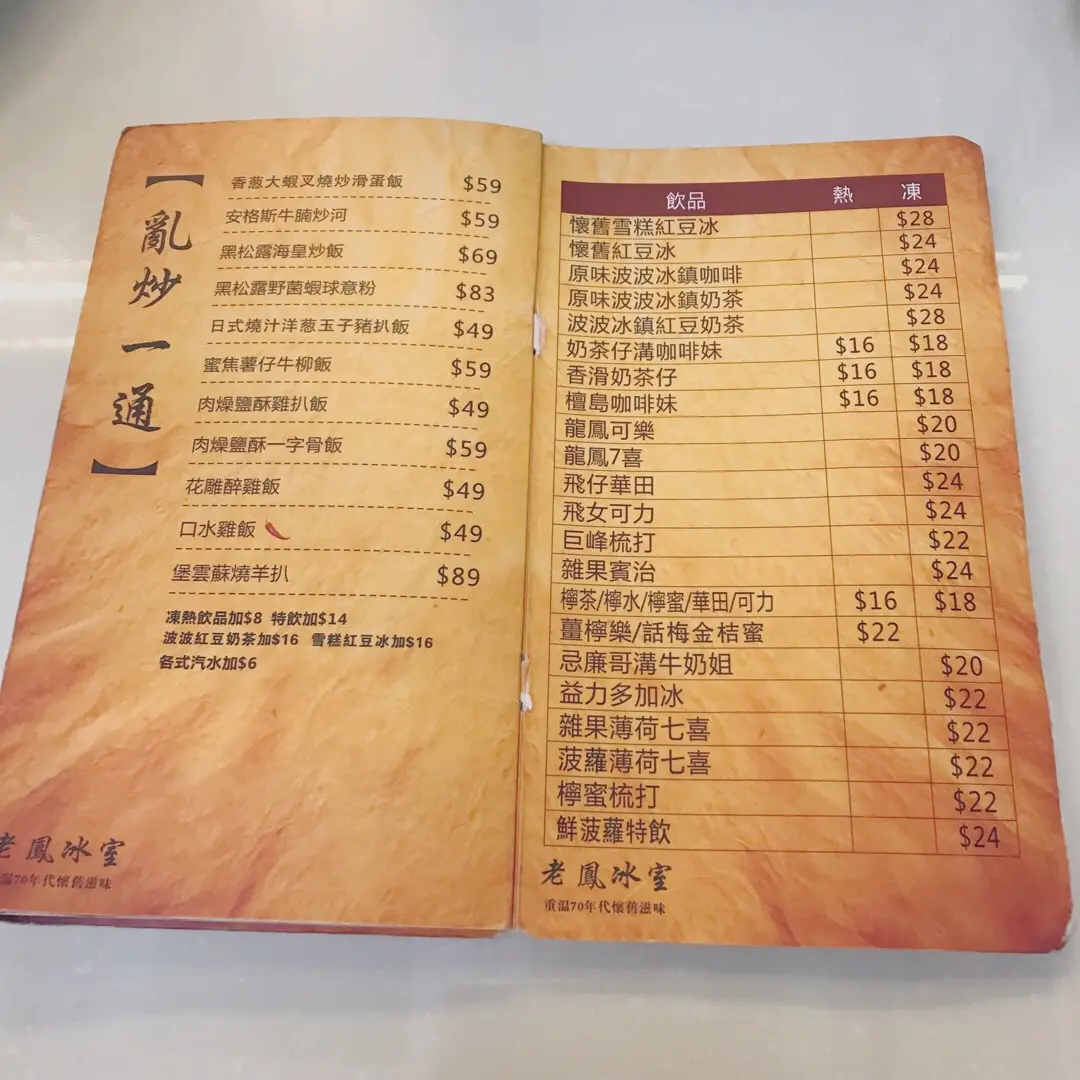 【亂炒一通】
香葱大蝦叉燒炒滑蛋飯 $59
安格斯牛腩炒河 $59
黑松露海皇炒飯 $69
黑松露野菌蝦球意粉 $83
日式燒汁洋葱玉子豬扒飯 $49
蜜焦薯仔牛柳飯 $59
肉燥鹽酥雞扒飯 $49
肉燥鹽酥一字骨飯 $59
花雕醉雞飯 $49
口水雞飯 $49
堡雲蘇燒羊扒 $89
凍熱飲品加$8 特飲加$14
波波紅豆奶茶加$16 雪糕紅豆冰加$16
各式汽水加$6
老鳳冰室
溫70年代懷舊滋味
飲品 熱 凍
懷舊雪糕紅豆冰 $28
懷舊紅豆冰 $24
原味波波冰鎮咖啡 $24
原味波波冰鎮奶茶 $24
波波冰鎮紅豆奶茶 $28
奶茶仔溝咖啡妹 $16 $18
香滑奶茶仔 $16 $18
檀島咖啡妹 $16 $18
龍鳳可樂 $20
龍鳳7喜 $20
飛仔華田 $24
飛女可力 $24
巨峰梳打 $22
雜果賓治 $24
檸茶/檸水/檸蜜/華田/可力 $16 $18
薑檸樂/話梅金桔蜜 $22
忌廉哥溝牛奶姐 $20
益力多加冰 $22
雜果薄荷七喜 $22
菠蘿薄荷七喜 $22
檸蜜梳打 $22
鮮菠蘿特飲 $24
老鳳冰室
重溫70年代懷舊滋味